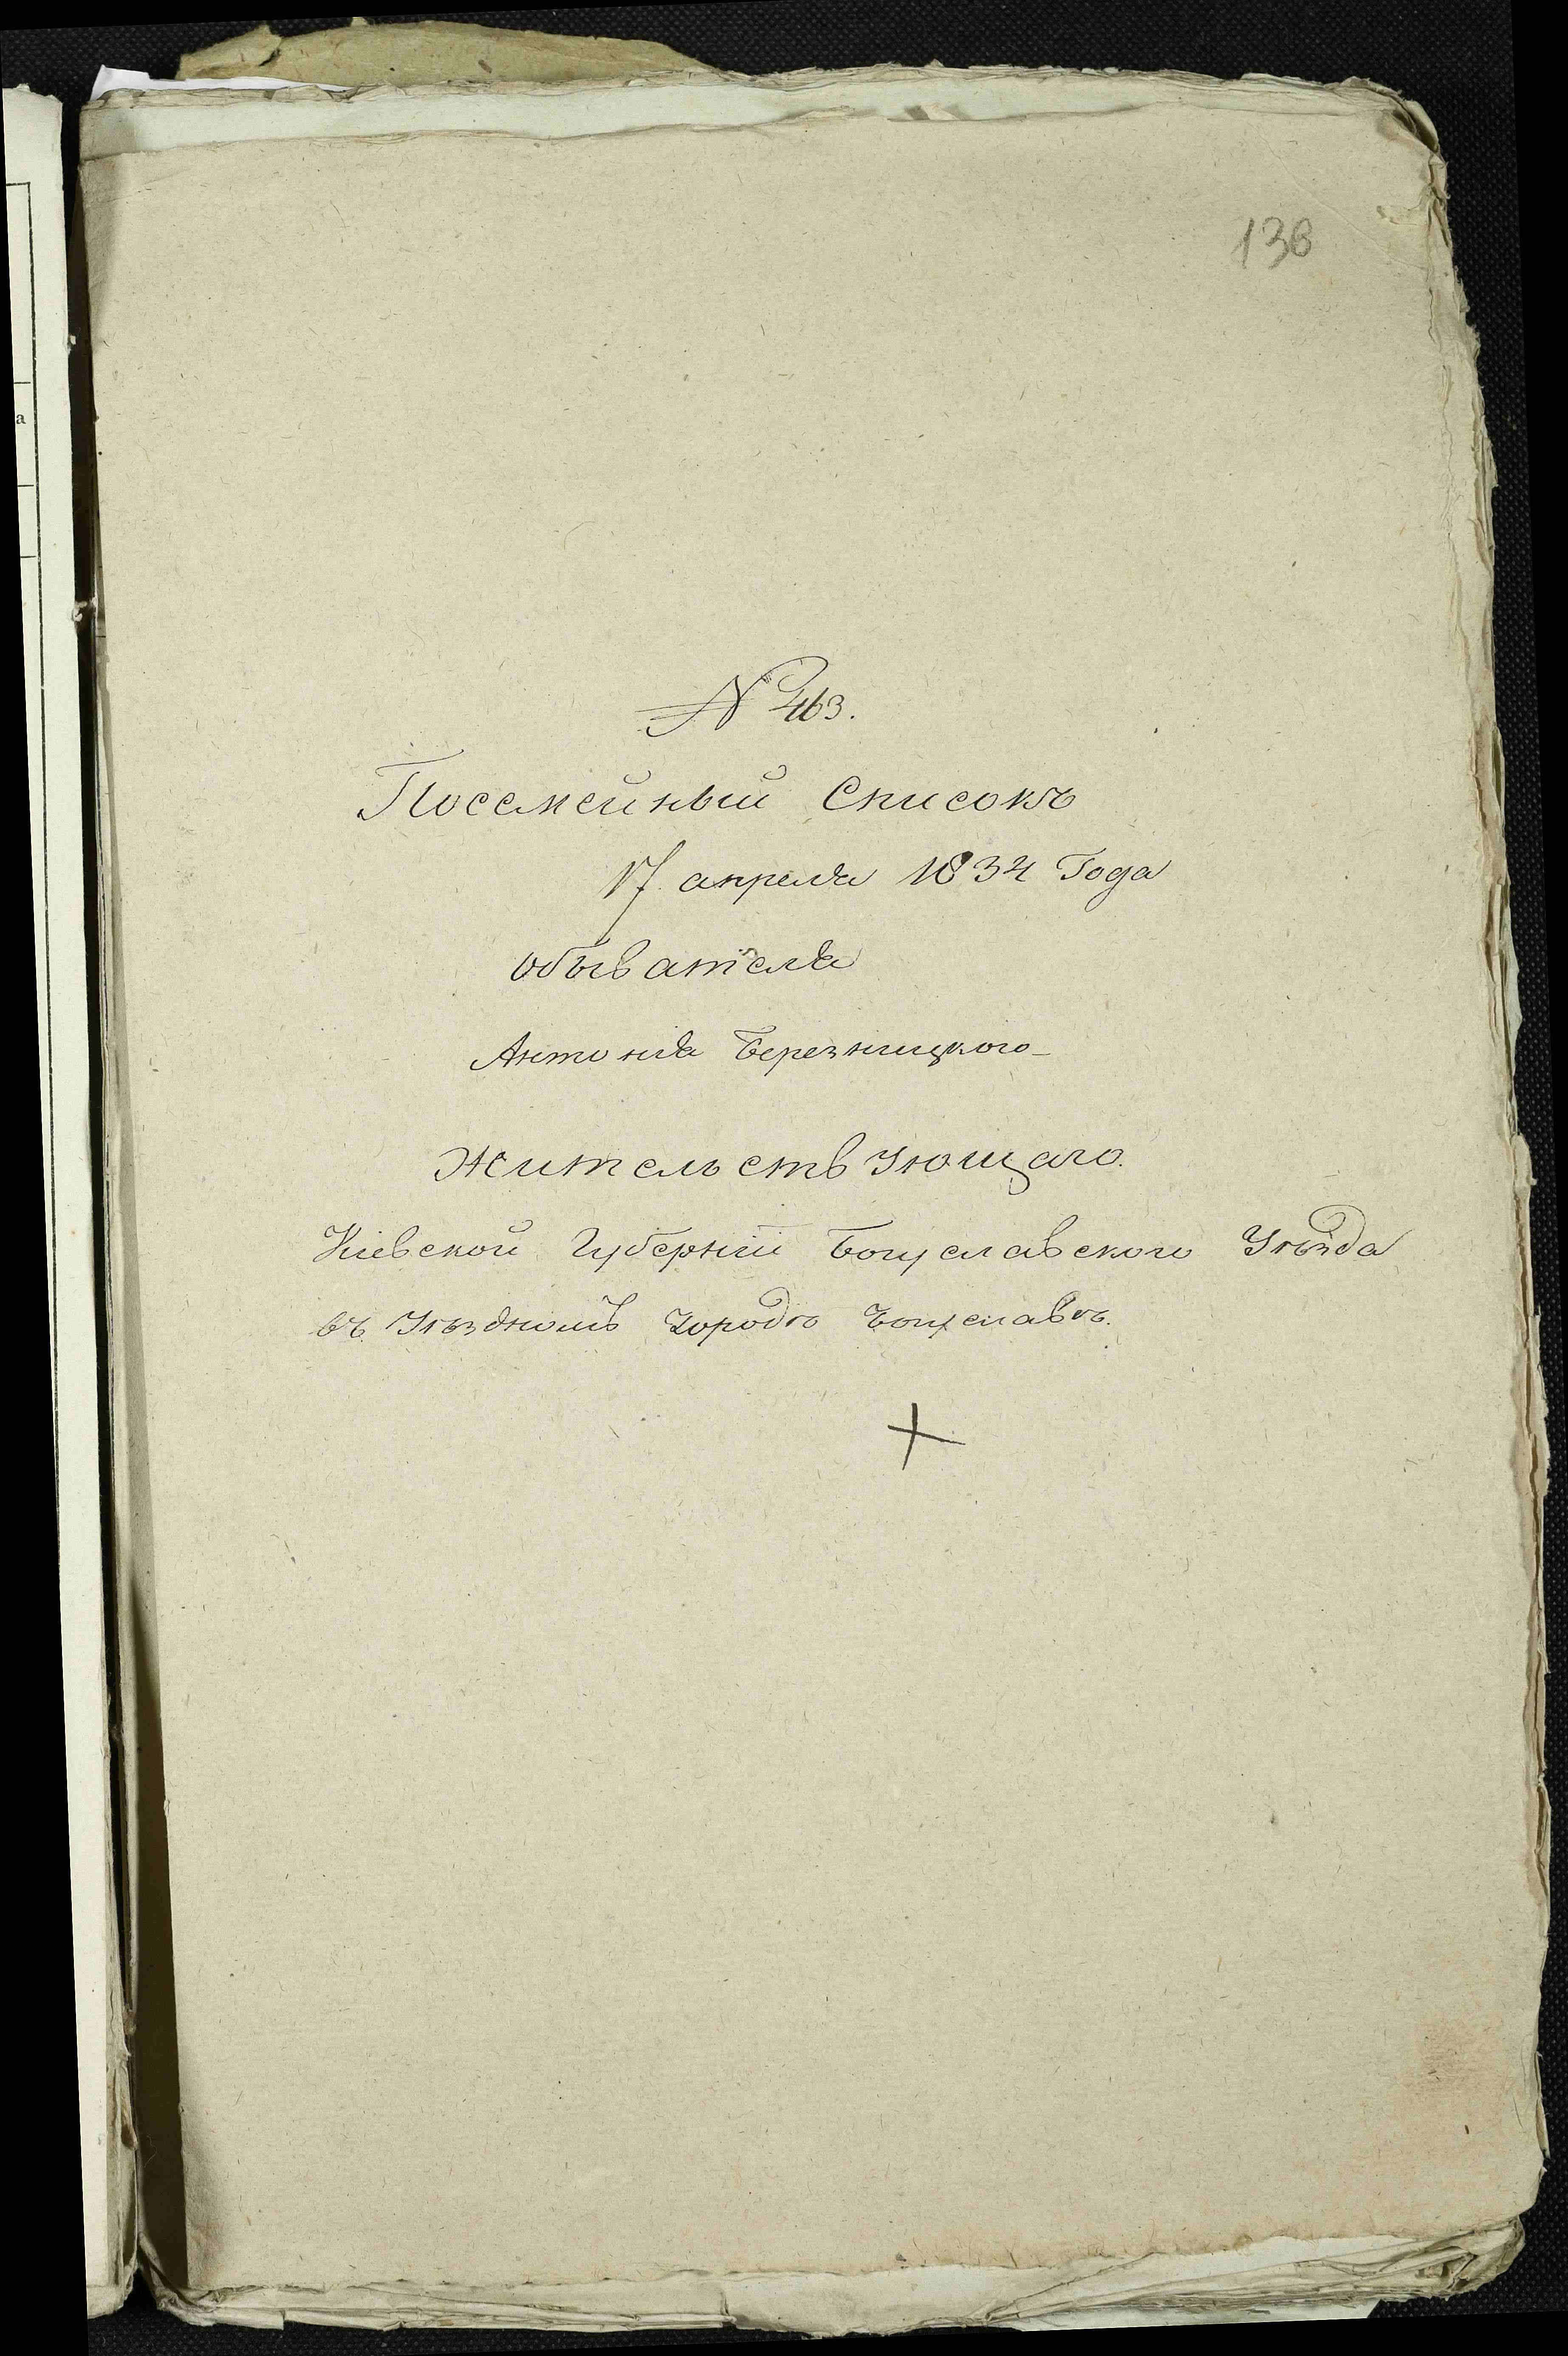 138
№ 463.
Посемейный Списокъ
17 апреля 1834 Года
обывателя
Антонія Березницкого
Жительствующаго.
Кіевской Губерніи Богуславского Уѣзда
въ Уѣздномъ Городѣ Богуславѣ.
а